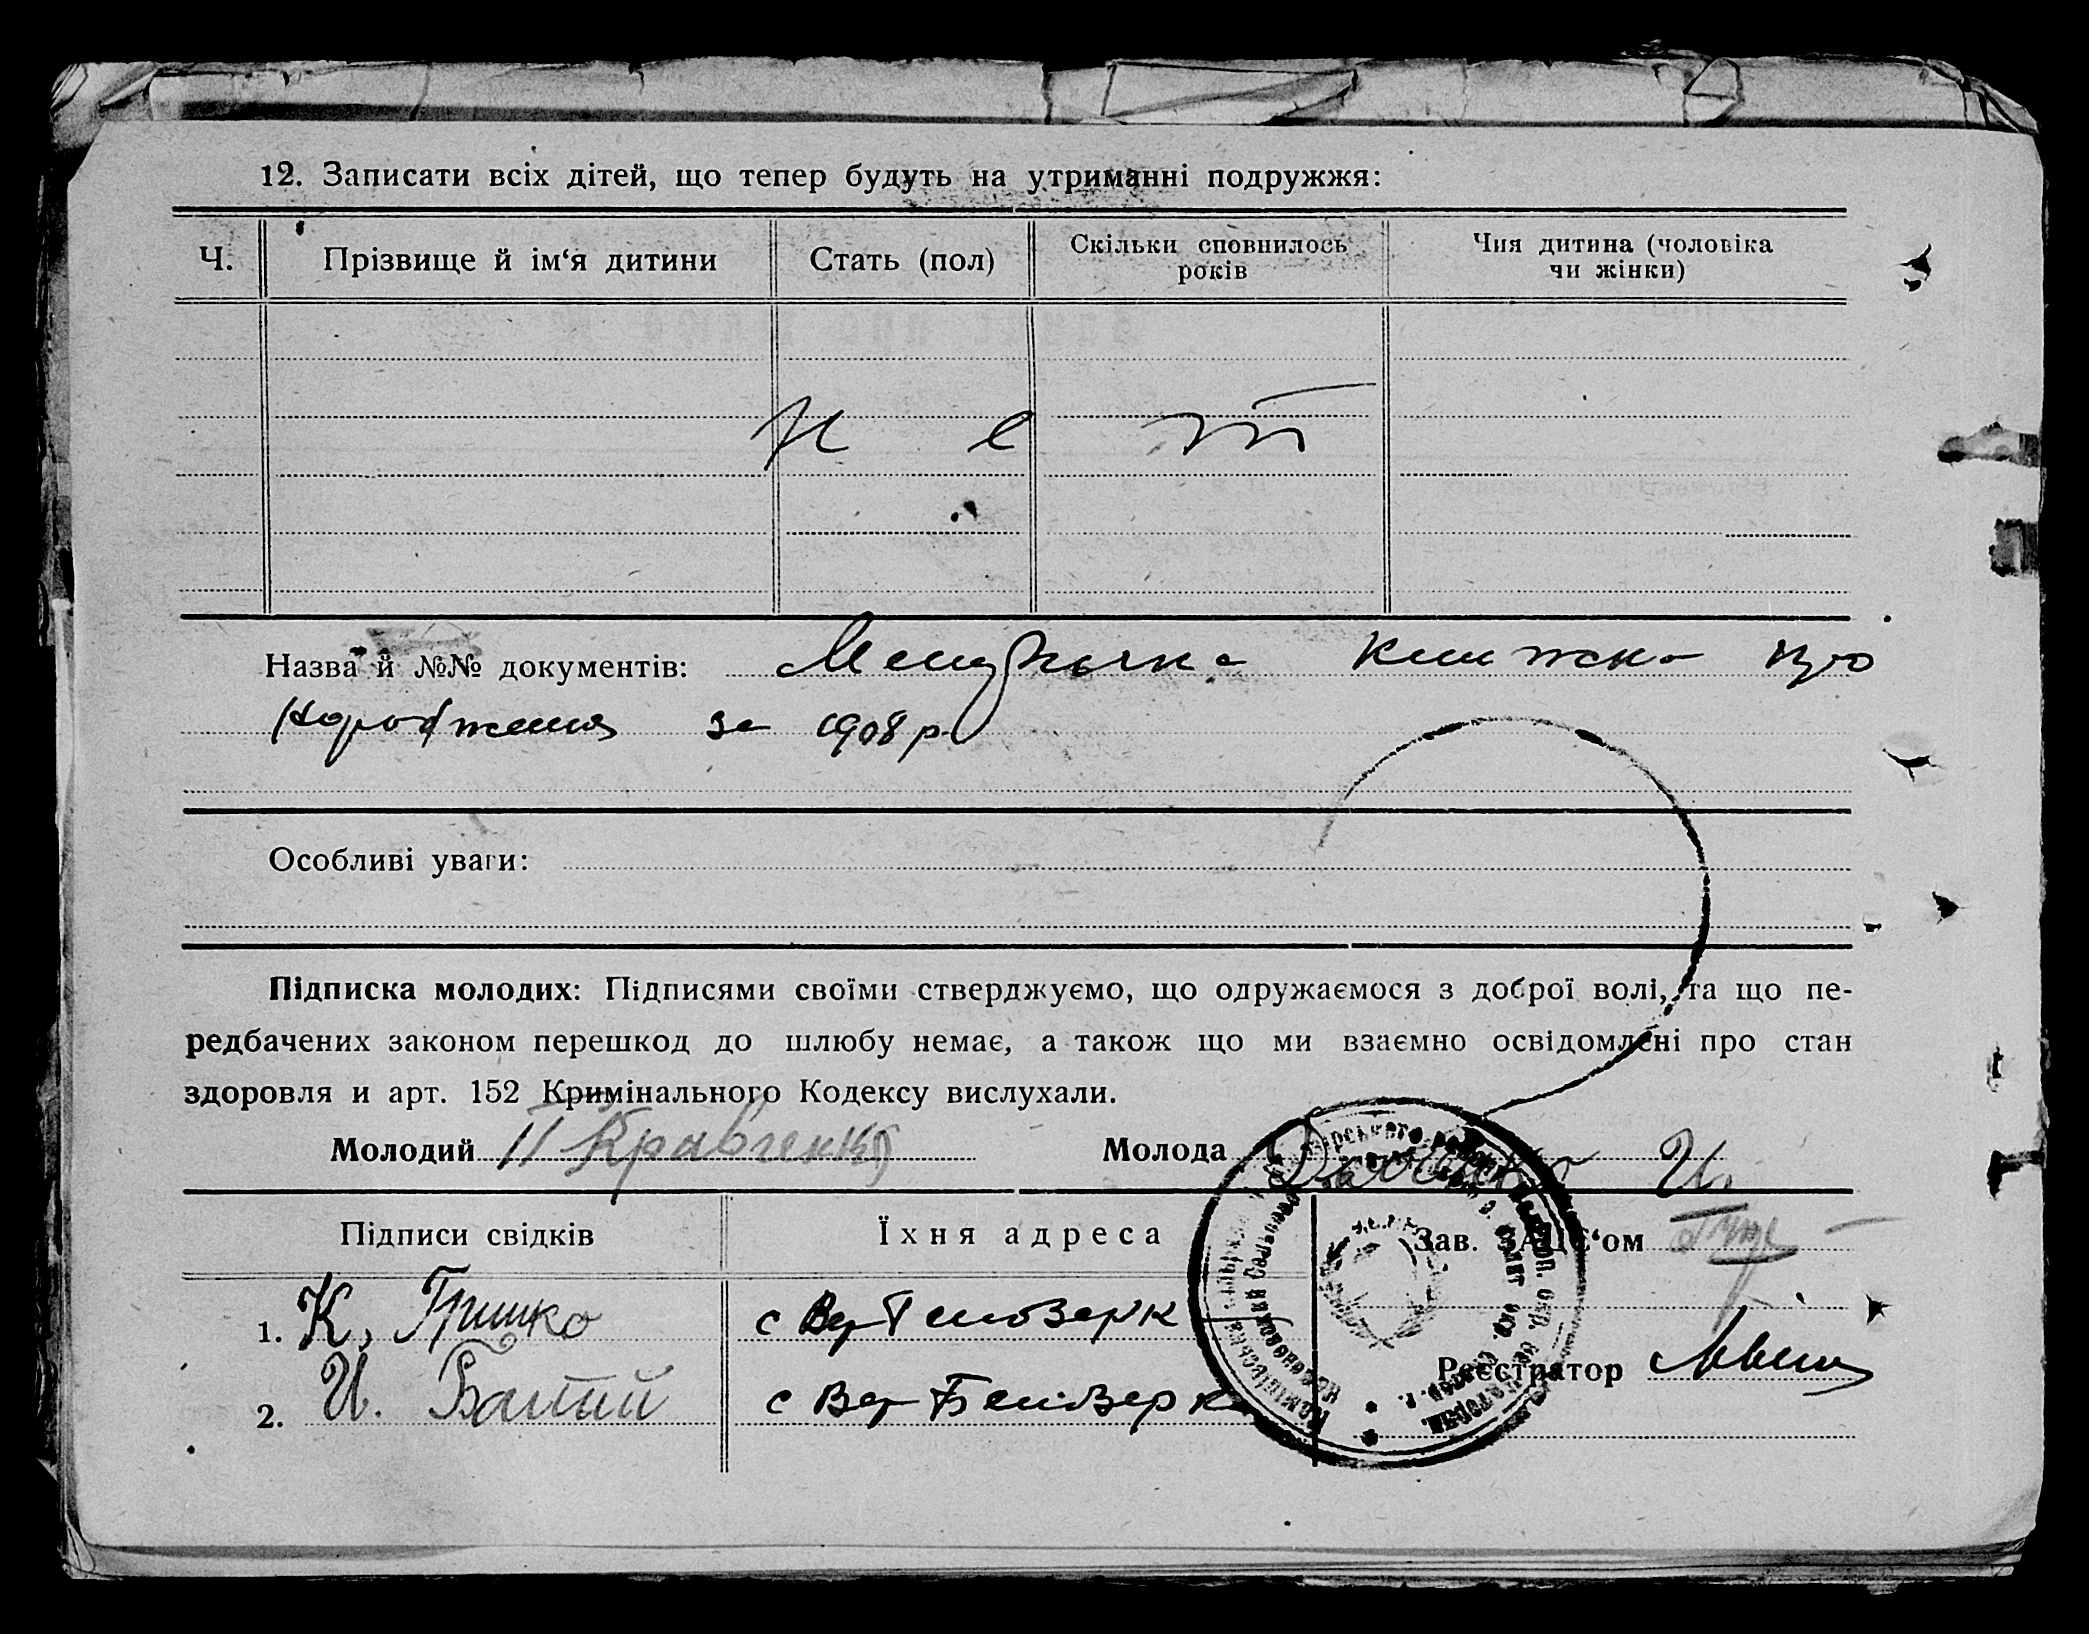 12. Записати всіх дітей, що тепер будуть на утриманні подружжя:
Ч. Прізвище й ім‘я дитини Стать (пол) Скільки сповнилось років Чия дитина (чоловіка чи жінки)
Н е т
Назва й №№ документів: книжка про
народження за 1908 р.
Особливі уваги:
Підписка молодих: Підписями своїми стверджуємо, що одружаємося з доброї волі, та що пе-
редбачених законом перешкод до шлюбу немає, а також що ми взаємно освідомлені про стан
здоровля и арт. 152 Кримінального Кодексу вислухали.
Молодий П Кравченко Молода И.
Підписи свідків Їхня адреса Зав. ЗАЦС‘ом
1. К. Гришко с
Реєстратор
2. И. Батий с